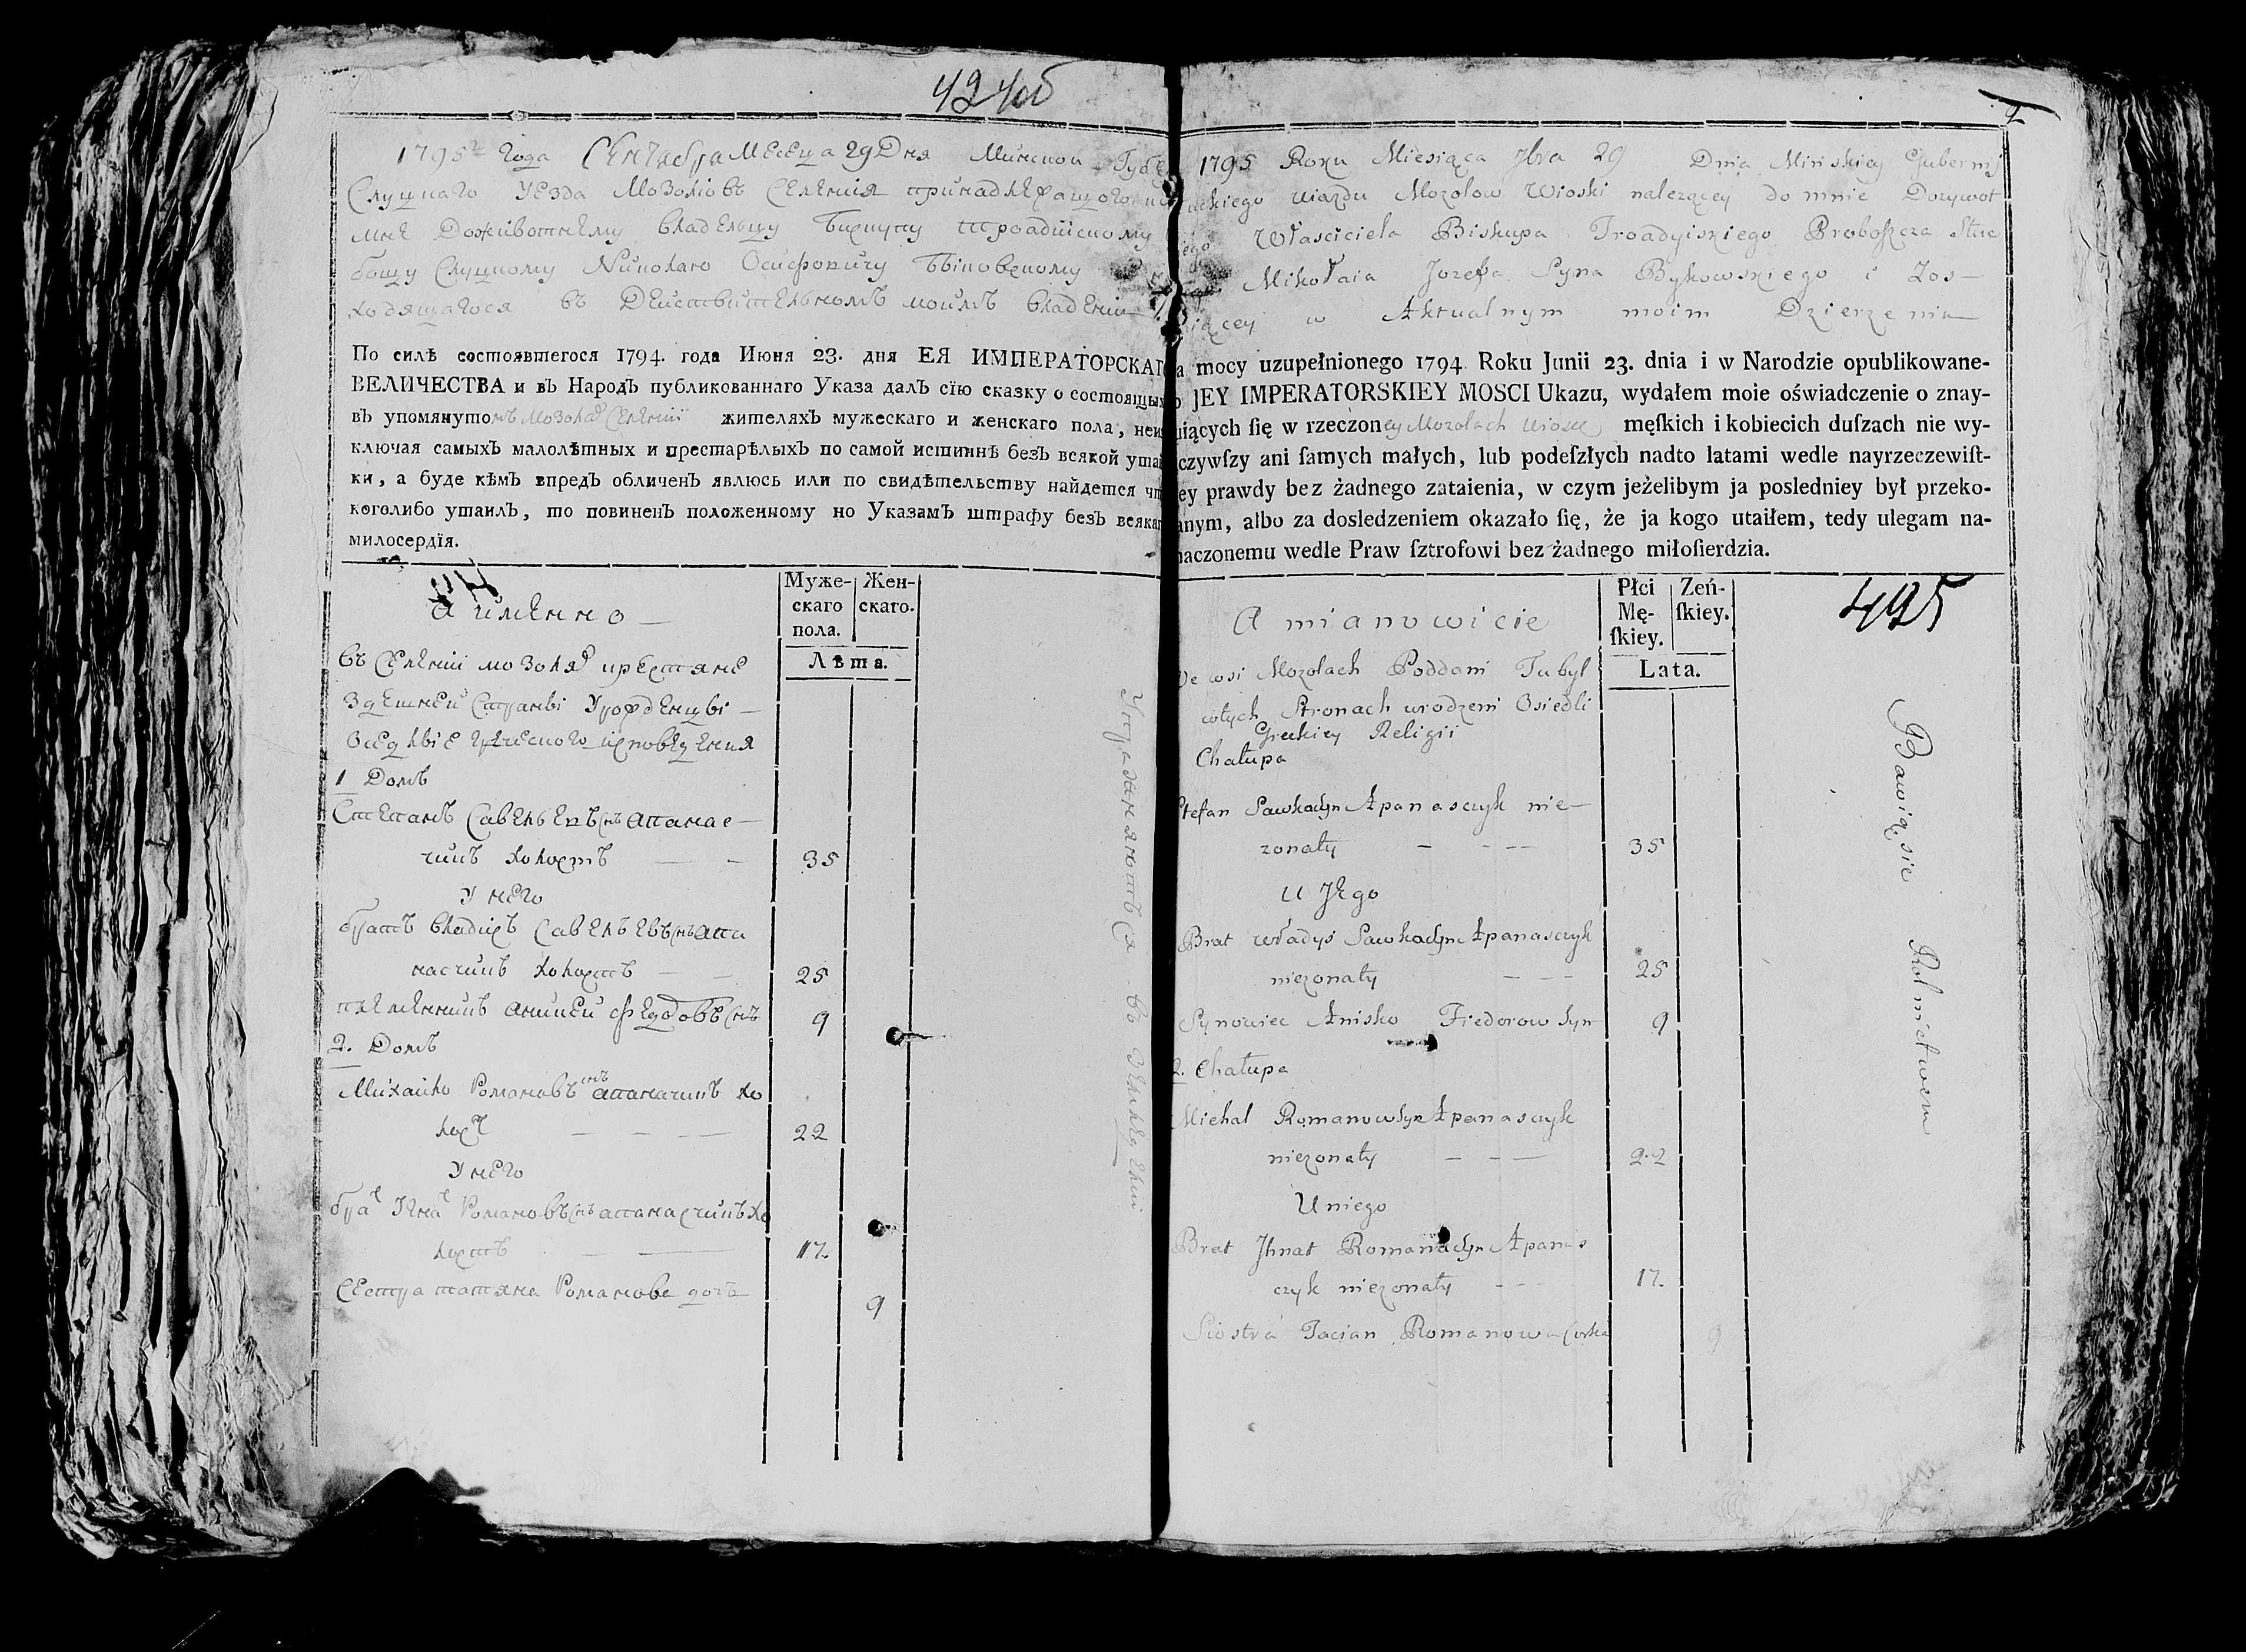 424об
1795 года Сентебра Месеца 29 Дня Минской Губе
Слуцкаго Уезда Мозолювъ Селения принадлежащого
мне Доживотнему владельцу Бискупу Троадийскому
бощу Слуцкому Николаю Осифовичу Быковскому
ходящагося въ Действительномъ моимъ владении
По силѣ состоявшегося 1794. года Июня 23. дня ЕЯ ИМПЕРАТОРСКАГО
ВЕЛИЧЕСТВА и въ Народъ публикованнаго Указа далъ сїю сказку о состоящихъ
въ упомянутомъ Мозоля Селении жителяхъ мужескаго и женскаго пола, неис
ключая самыхъ малолѣтныхъ и престарѣлыхъ по самой истиннѣ безъ всякой утай
ки, а буде кѣмъ впредь обличенъ явлюсь или по свидѣтельству найдется что
коголибо утаилъ, то повиненъ положенному по Указамъ штрафу безъ всякаго
милосердїя.
А именно
Муже-скаго пола.
Жен-скаго.
Лѣта.
въ Селении мозоля крестяне
здешней Страны Урожденцы
Оседлые греческого исповедения
1 Домъ
Степанъ Савельевъ снъ апанас
чикъ холостъ 35
У него
братъ владисъ Савельевъ снъ апа
насчикъ холостъ 25
племенникъ анисей Федоровъ снъ 9
2. Домъ
Михайло Романовъ снъ апаначикъ хо
лост 22
У него
брат Игнат Романовъ снъ апанасчикъ хо
лостъ 17.
Сестра татяна Романова дочь 9
Упражняются въ Земледелии
1
1795 Roku Miesiąca 7bra 29 Dnia Minskiey Gubernij
uckiego Uiazdu Mozolow Wioski nalezącey do mnie Dozywot
ego Własciciela Biskupa Troadyiskiego Proboszcza Słuc
Mikołaia Jozefa Syna Bykowskiego i Zos
iącey w Aktualnym moim Dzierzeniu
a mocy uzupełnionego 1794 Roku Junii 23. dnia i w Narodzie opublikowane-
o JEY IMPERATORSKIEY MOSCI Ukazu, wydałem moie oświadczenie o znay-
uiących ſię w rzeczoney Mozolach Wiosce męſkich i kobiecich duſzach nie wy-
czywſzy ani ſamych małych, lub podeſzłych nadto latami wedle nayrzeczewiſt-
ey prawdy bez żadnego zataienia, w czym jeżelibym ja posledniey był przeko-
anym, albo za dosledzeniem okazało ſię, że ja kogo utaiłem, tedy ulegam na-
naczonemu wedle Praw ſztrofowi bez żadnego miłoſierdzia.
A mianowicie
Płci Mę-ſkiey.
Zeń-ſkiey.
Lata.
495
We wsi Mozolach Poddani Tubyl
cołych Stronach urodzeni Osiedli
Greckiey Religii
Chałupa
Stefan Sawka Syn Apanasczyk nie
zonaty 35
U Jego
Brat Władyś Sawka Syn Apanasczyk
niezonaty 25
Synowiec Anisko Fiedorow Syn 9
2. Chałupa
Michal Romanow Syn Apanasczyk
niezonaty 22
U niego
Brat Jhnat Romana Syn Apanas
czyk niezonaty 17.
Siostra Tacian Romanowa Corka 9
Bawią sie Rolnictwem